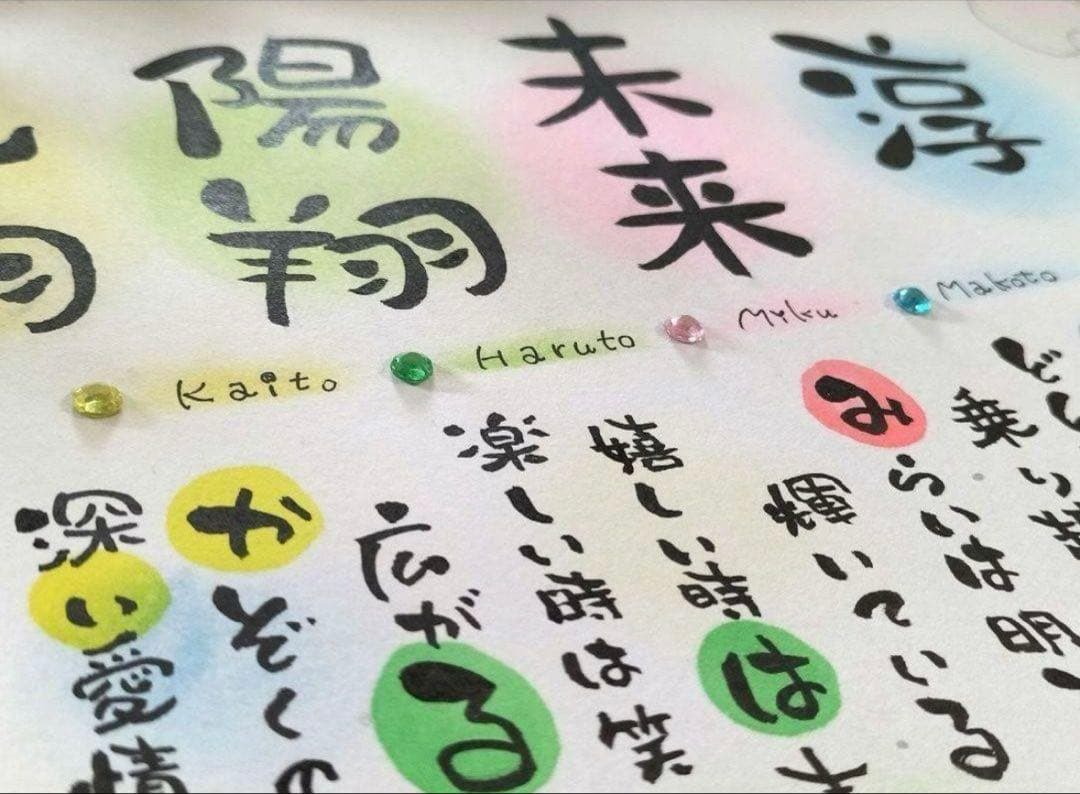 未来
陽翔
Makoto
Miku
Haruto
Kaito
どん
乗り
みらいは明
輝いている
嬉しい時は
楽しい時は笑
広がる
かぞくの
深い愛情